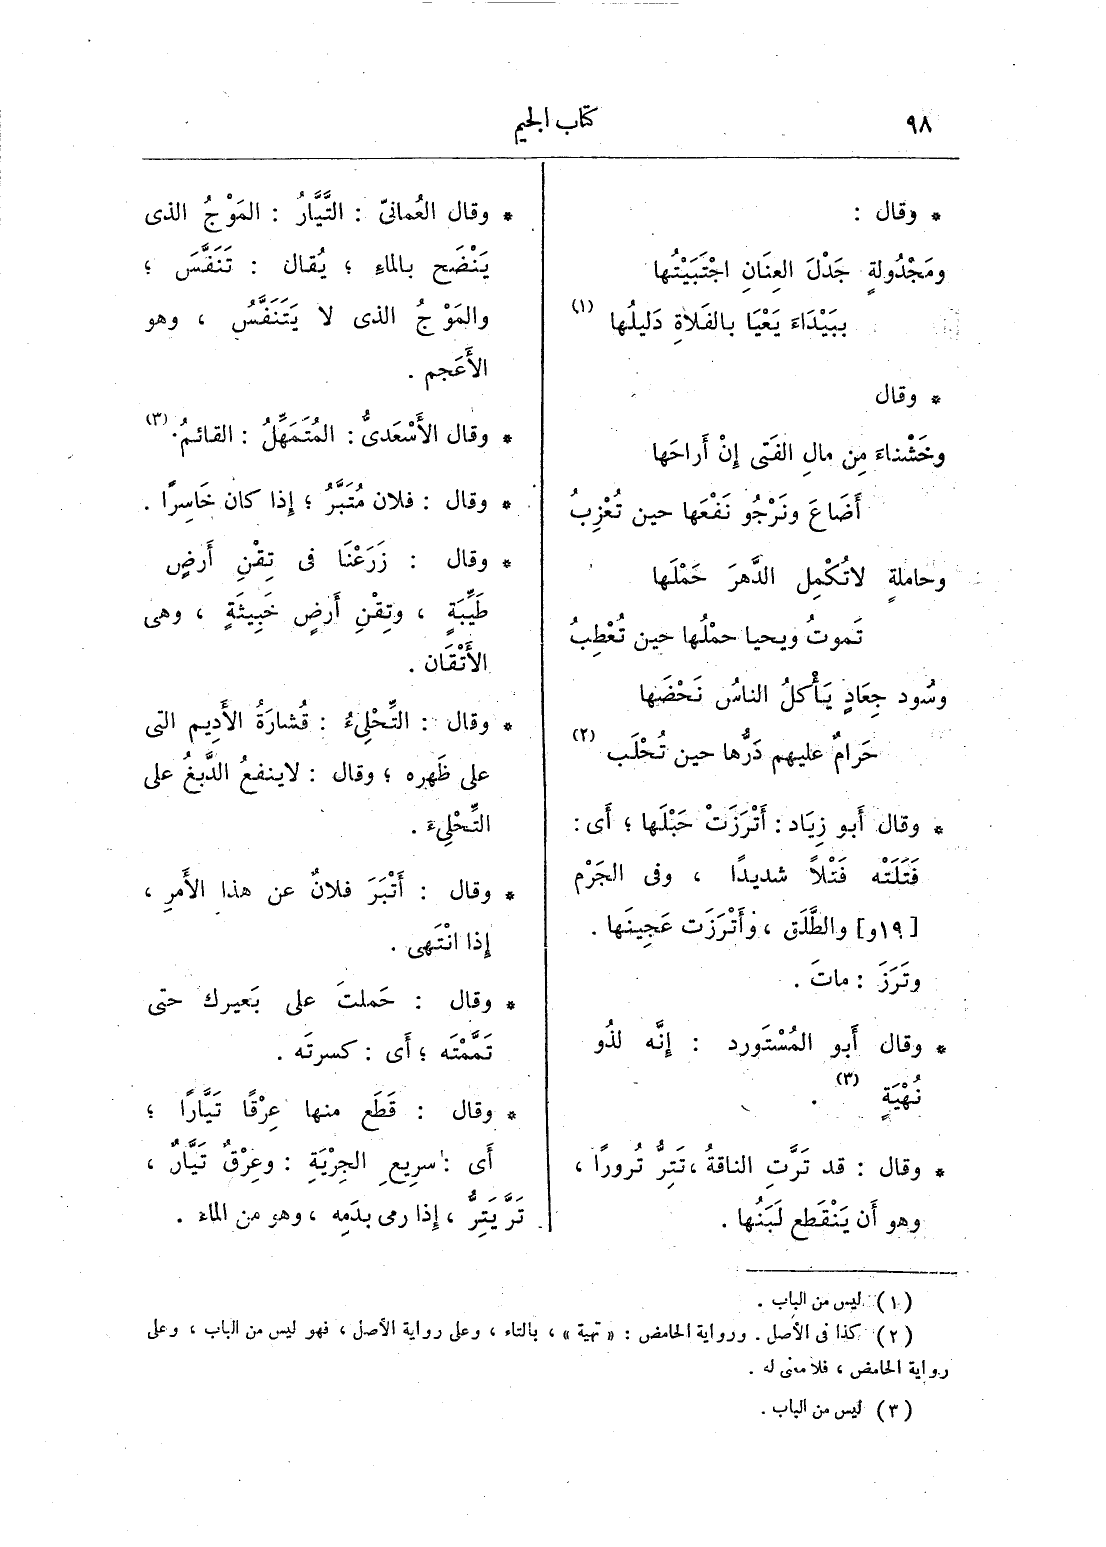 ٩٨
كتاب الجيم
* وقال :
ومَجْدُولةٍ جَدْلَ العِنَانِ اجْتَبَيْتُها
ببَيْدَاءَ يَعْيَا بالفَلاةِ دَليلُها (١)
* وقال
وخَشْناءَ مِن مالِ الفَتى إنْ أَراحَها
أَضَاعَ ونَرْجُو نَفْعَها حين تُعْزِبُ
وحاملةٍ لاتُكْمِل الدَّهرَ حَمْلَها
تَموتُ ويحيا حمْلُها حين تُعْطِبُ
وسُود جِعَادٍ يَأْكلُ الناسُ نَحْضَها
حَرامٌ عليهم دَرُّها حين تُحْلَب (٢)
* وقال أَبو زِيَاد : أَتْرَزَتْ حَبْلَها ؛ أَى :
فَتَلَتْه فَتْلاً شديدًا ، وفى الجَرْم
[ ١٩و] والطَّلَق ، وأَتْرَزَت عَجِينَها .
وتَرَزَ : ماتَ .
* وقال أَبو المُسْتَورد : إنَّه لذُو
نُهْيَةٍ (٣) .
* وقال : قد تَرَّتِ الناقةُ ، تَتِرُّ تُرورًا ،
وهو أَن يَنْقَطع لَبَنُها .
* وقال العُمانىّ : التَّيَّارُ : المَوْجُ الذى
يَنْضَح بالماءِ ؛ يُقال : تَنَفَّسَ ؛
والمَوْجُ الذى لا يَتَنَفَّسُ ، وهو
الأَعَجم .
* وقال الأَسْعَدىُّ : المُتَمَهِّلُ : القائمُ . (٣)
* وقال : فلان مُتَبَّرٌ ؛ إذا كان خَاسِرًا .
* وقال : زَرَعْنَا فى تِقْنِ أَرضٍ
طَيِّبَةٍ ، وتِقْنِ أَرضٍ خَبِيثَةٍ ، وهى
الأَتْقَان .
* وقال : التِّحْلِىءُ : قُشارَةُ الأَديم التى
على ظَهره ؛ وقال : لاينفعُ الدَّبغُ على
التِّحْلِىءَ .
* وقال : أَتْبَرَ فلانٌ عن هذا الأَمرِ ،
إذا انْتَهى .
* وقال : حَملتَ على بَعيرك حتى
تَمَّمْتَه ؛ أَى : كسرتَه .
* وقال : قَطَع منها عِرْقًا تَيَّارًا ؛
أَى : سريعِ الجِرْيَةِ : وعِرْقٌ تَيَّارٌ ،
تَرَّ يَتِرُّ ، إذا رمى بدَمِه ، وهو من الماء .
(١) ليس من الباب .
(٢) كذا فى الأصل . ورواية الحامض : « تهية » ، بالتاء ، وعلى رواية الأصل ، فهو ليس من الباب ، وعلى
رواية الحامض ، فلا معنى له .
(٣) ليس من الباب .